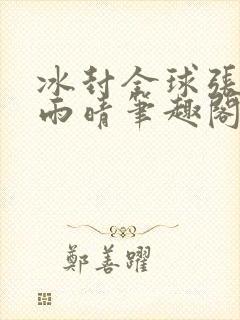 冰封全球張
雨晴筆趣閣
鄭善躍